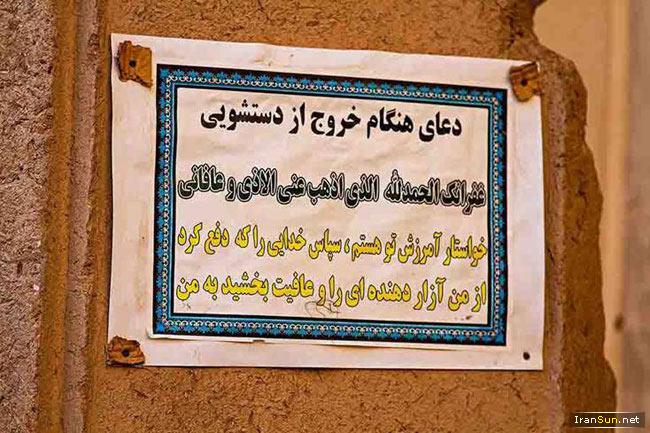 دعای هنگام خروج از دستشویی
غفرانک الحمدلله الذی اذهب عنی الاذی و عافانی
خواستار آمرزش تو هستم ، سپاس خدایی را که دفع کرد
از من آزار دهنده ای را و عافیت بخشید به من
IranSun.net